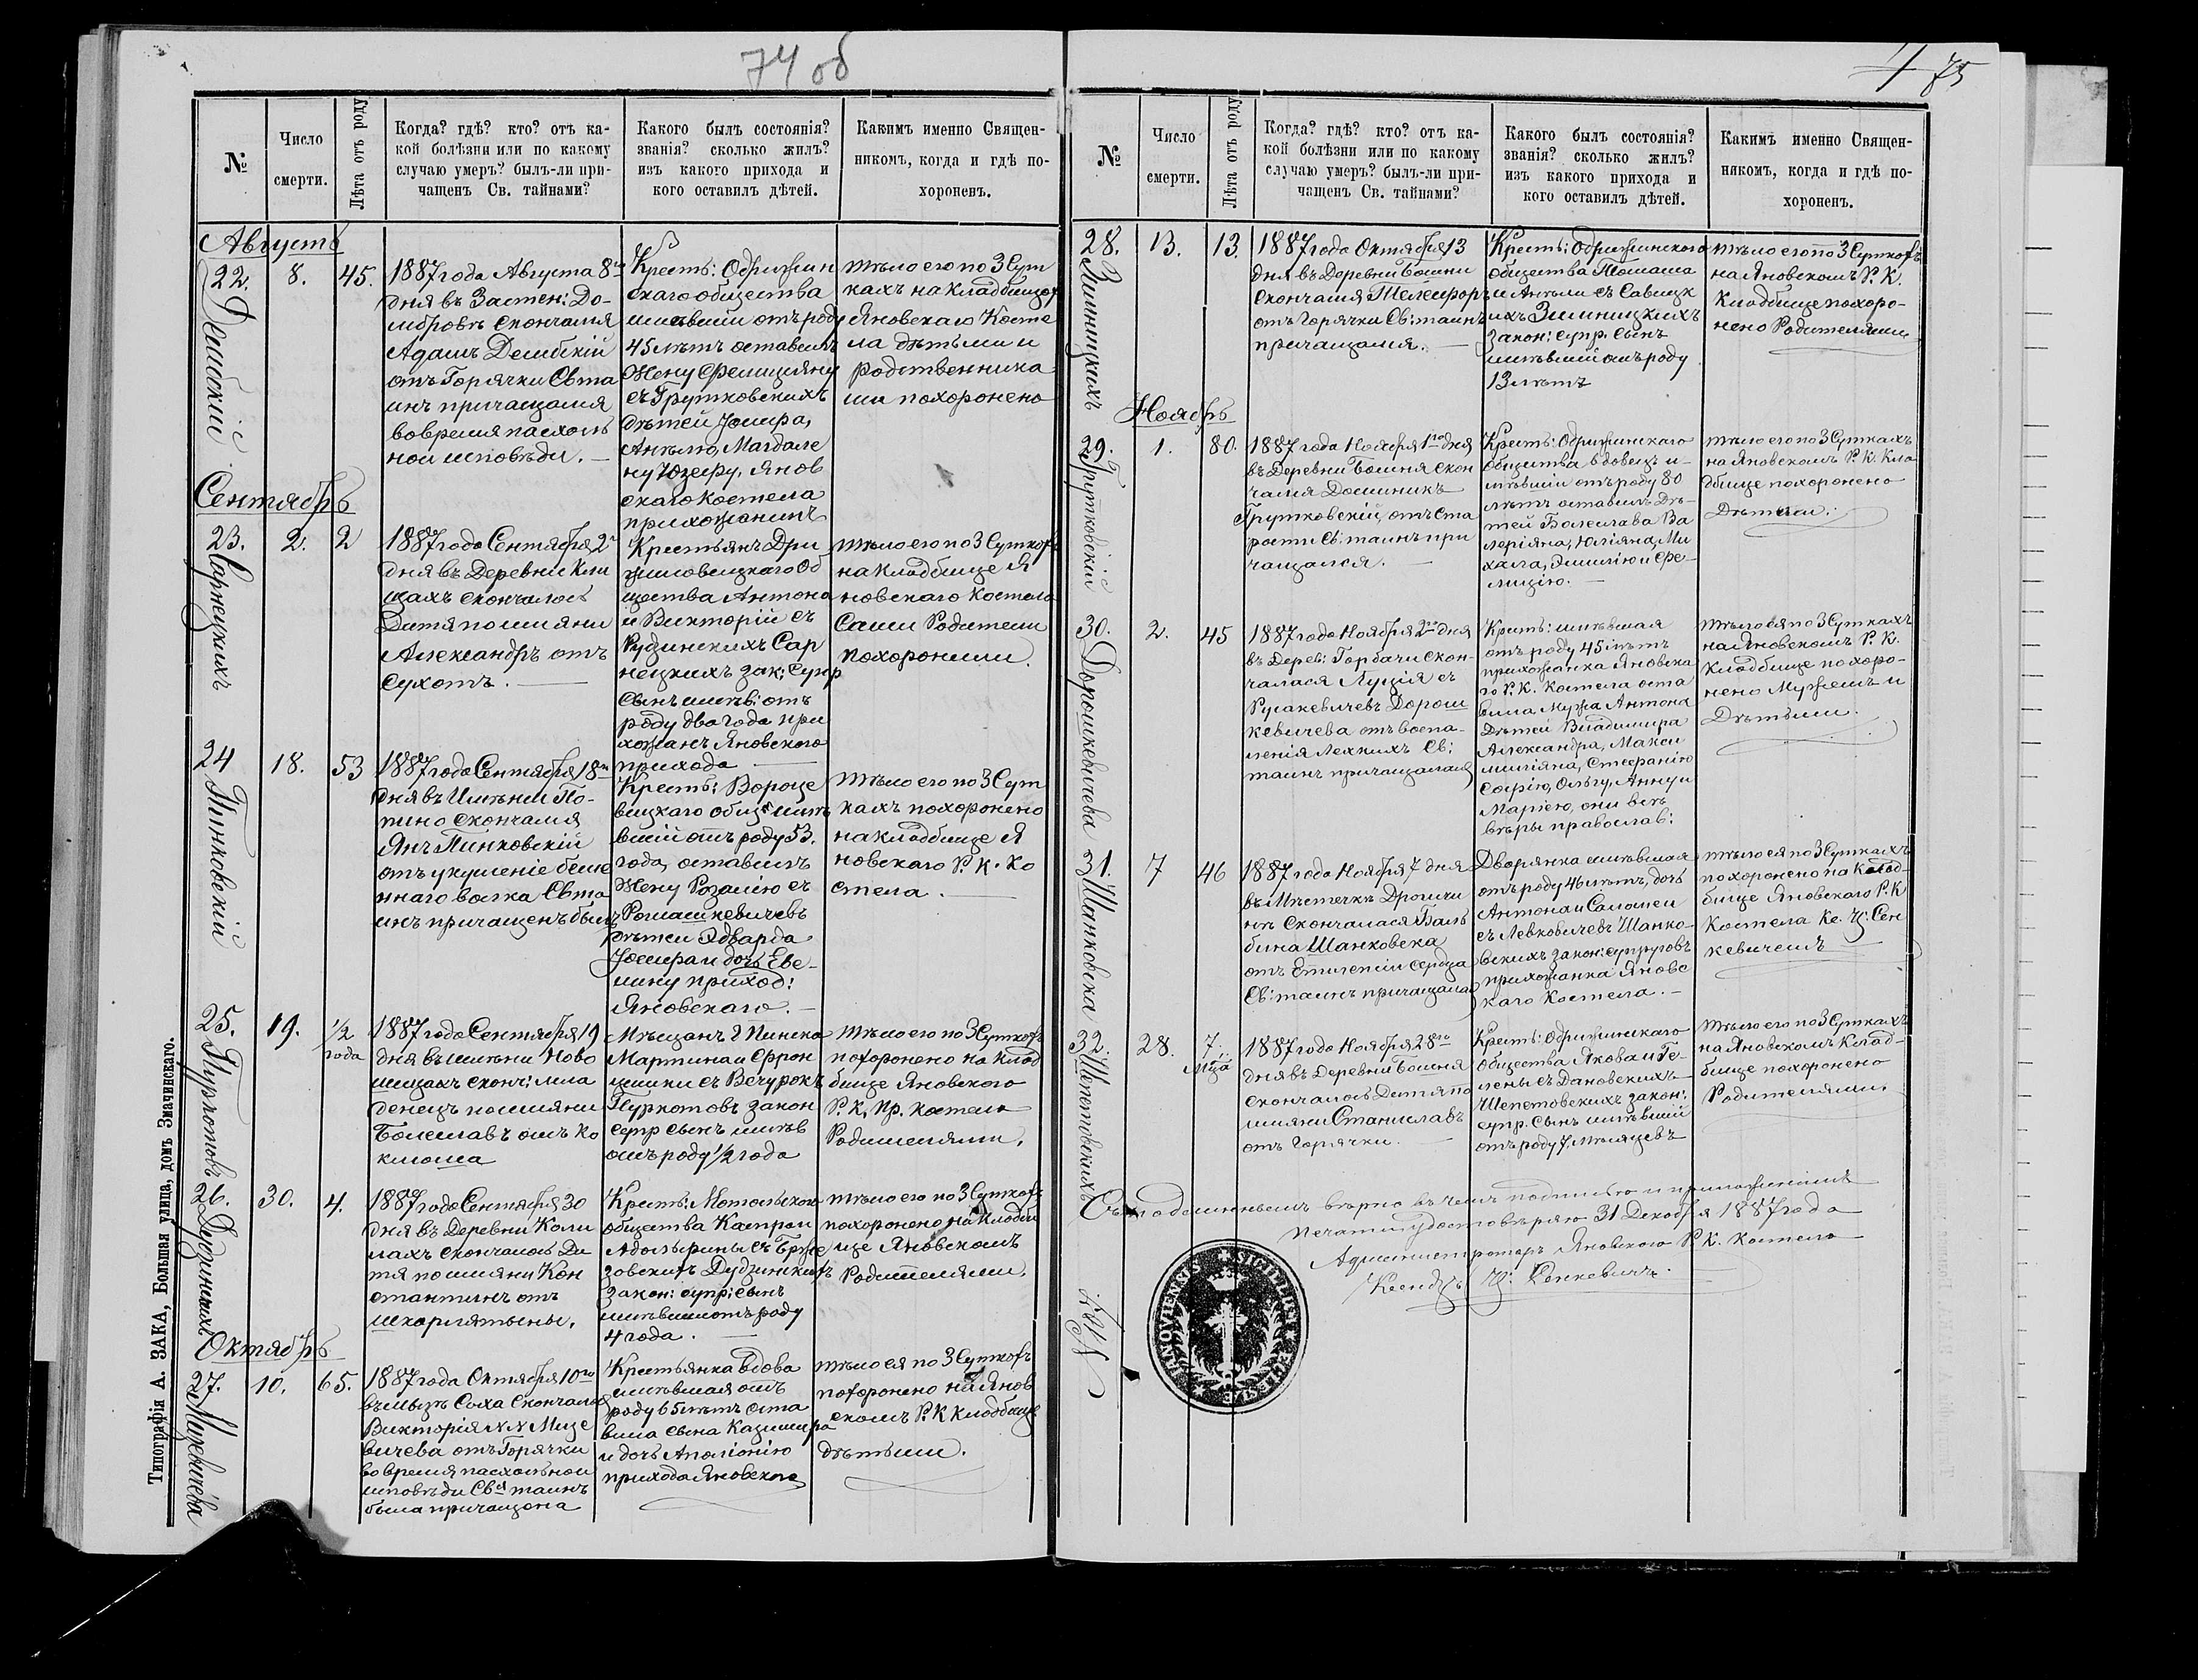 74 об
№
Число
смерти.
Лѣта отъ роду
Когда? гдѣ? кто? отъ ка-
кой болѣзни или по какому
случаю умеръ? былъ-ли при-
чащенъ Св. тайнами?
Какого былъ состоянія?
званія? сколько жилъ?
изъ какого прихода и
кого оставилъ дѣтей.
Какимъ именно Священ-
никомъ, когда и гдѣ по-
хороненъ.
Августъ
22.
Дембскій
8.
45.
1887 года Августа 8го
дня въ Застен: До-
мбровѣ скончался
Адамъ Дембскій
отъ Горячки Св та
инъ причащался
вовремя пасхаль
ной исповѣди.
Крестъ: Одрижин
скаго общества
имѣвшій отъ роду
45 лѣтъ оставилъ
Жену Фелицияну
съ Грутковскихъ
дѣтей Іосифа,
Анѣлю, Магдале
ну Юзефу, Янов
скаго костела
прихожанинъ
тѣло его по 3 Сут
кахъ на кладбищѣ
Яновскаго Косте
ла дѣтьми и
родственника
ми похоронено
Сентябрь
23.
Сарнецкихъ
2.
2
1887 года Сентября 2го
дня въ Деревни Кли
щахъ скончалось
Дитя по имяни
Александръ отъ
Сухотъ.
Крестьянъ Дри
жиловецкаго Об
щества Антона
и Викторіи съ
Рудзинскихъ Сар
нецкихъ зак: Супр
Сынъ имѣв: отъ
роду два года при
хожанъ Яновского
прихода
тѣло его по 3 Суткахъ
на кладбище Я
новскаго костела
Сами Родители
похоронили.
24
Пинковскій
18.
53
1887 года Сентября 18го
дня въ Имѣнии По-
пино скончался
Янъ Пинковскій
отъ укушеніе беше
ннаго волка Св та
инъ причащенъ былъ
Крестъ: Вороце
вицкаго общ. имѣ
вшій отъ роду 53.
года, оставилъ
Жену Розалію съ
Ромашкевичевъ
дѣтей Эдварда
Іосифа и дочь Еве-
лину приход:
Яновскаго.
тѣло его по 3 Сут
кахъ похоронено
на кладбище Я
новскаго Р. К. Ко
стела.
25.
Пуркотовъ
19.
1/2
года
1887 года Сентября 19
дня въ имѣни Ново
лищахъ сконч: мла
денецъ по имяни
Болеславъ отъ ко
клюша
Мѣщанъ г Пинска
Мартина и Ефрон
цишки съ Вечурокъ
Пуркотовъ закон
супр сынъ имѣв
отъ роду 1/2 года
тѣло его по 3 Суткахъ
похоронено на Клад
бище Яновского
Р. К. пр. костела
Родителями.
26.
Дудзинскихъ
30.
4.
1887 года Сентября 30
дня въ Деревни Коли
лахъ скончалось Ди
тя по имяни Кон
стантинъ отъ
шкарлятыны.
Крестъ: Мотольскои
общества
закон: супр: сынъ
имѣвши отъ роду
4 года.
тѣло его по 3 Суткахъ
похоронено на кладби
ще Яновскомъ
Родителями.
Октябрь
27.
Мицевичева
10.
65.
1887 года Октября 10го
Соха Скончалась
Викторія N N Мице
вичева отъ Горячки
во время пасхальной
исповѣди Свя таинъ
была причащена
Крестьянка вдова
имѣвшая отъ
роду 65 лѣтъ оста
вила сына Казимира
и дочь Аполонію
прихода Яновскаго
тѣло ея по 3 Суткахъ
похоронено на Янов
скомъ Р. К кладбище
дѣтьми.
Типографія А. ЗАКА, Большая улица, домъ Значинскаго.
4 75
№
Число
смерти.
Лѣта отъ роду
Когда? гдѣ? кто? отъ ка-
кой болѣзни или по какому
случаю умеръ? былъ-ли при-
чащенъ Св. тайнами?
Какого былъ состоянія?
званія? сколько жилъ?
изъ какого прихода и
кого оставилъ дѣтей.
Какимъ именно Священ-
никомъ, когда и гдѣ по-
хороненъ.
28.
Зимницкихъ
13.
13.
1887 года Октября 13
дня въ Деревни Бошни
скончался Телесфоръ
отъ Горячки Св: таинъ
причащался.
Крестъ: Одрижинскаго
общества Томаша
и Анѣли съ Савицк
ихъ Зимницкихъ
закон: супр. сынъ
имѣвшій отъ роду
13 лѣтъ
тѣло его по 3 Суткахъ
на Яновскомъ Р. К.
Кладбище похоро-
нено Родителями
Ноябрь
29.
Грутковскій
1.
80.
1887 года Ноября 1го дня
въ Деревни Бошня скон
чался Доминикъ
Грутковскій, отъ ста
рости Св: таинъ при
чащался.
Крестъ: Одрижинскаго
общества вдовецъ и-
мѣвшій отъ роду 80
лѣтъ оставилъ Дѣ-
тей Болеслава Ва
леріяна, Юліяна, Ми
хала, Эмилію и Фе-
лицію.
тѣло его по 3 Суткахъ
на Яновскомъ Р. К. Кла
дбище похоронено
Дѣтьми.
30.
Дорошкевичева
2.
45
1887 года Ноября 2го дня
въ Дерев: Горбахи скон-
чалася Луція съ
Русакевичевъ Дорош
кевичева отъ воспа-
ленія лехкихъ Св:
таинъ причащалася
Крестъ: имѣвшая
отъ роду 45 лѣтъ
прихожанка Яновска
го Р. К. костела оста
вила Мужа Антона
Дѣтей Владимира
Александра, Макси
миліяна, Стефанію
Софію, Ольгу, Анну и
Марію, они всѣ
вѣры православ:
тѣло ея по 3 Суткахъ
на Яновскомъ Р. К.
кладбище похоро-
нено Мужемъ и
Дѣтьми.
31.
Шанковска
7
46
1887 года Ноября 7 дня
въ Мѣстечкѣ Дрогичи
нѣ Скончалася Баль
бина Шанковска
отъ Епилепсіи сердца
Св: таинъ причащалась
Дворянка имѣвшая
отъ роду 46 лѣтъ, дочь
Антона и Саломеи
съ Левковичевъ Шанко-
вскихъ закон: супруговъ
прихожанка Яновс
каго костела.
тѣло ея по 3 Суткахъ
похоронено на Клад-
бище Яновскаго Р. К
Костела Кс. Ч: Сен
кевичемъ
32.
Шепетовскихъ
28.
7.
мца
1887 года Ноября 28го
дня въ Деревни Бошня
скончалось Дитя по
имяни Станиславъ
отъ Горячки.
Крестъ: Одрижинскаго
общества Якова и Ге-
лены съ Дановскихъ
Шепетовскихъ закон:
супр. сынъ имѣвшій
отъ роду 7 мѣсяцевъ
тѣло его по 3 Суткахъ
на Яновскомъ Клад-
бище похоронено
Родителями
Съ подлиннымъ вѣрно въ чемъ подписью и приложеніемъ
печати удостовѣряю 31 Декабря 1887 года
Администраторъ Яновского Р. К. костела
Ксендзъ Ч: Сенкевичъ.